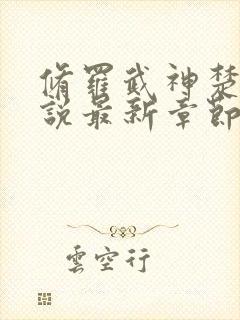 脩羅武神楚
說最新章節
雲空行